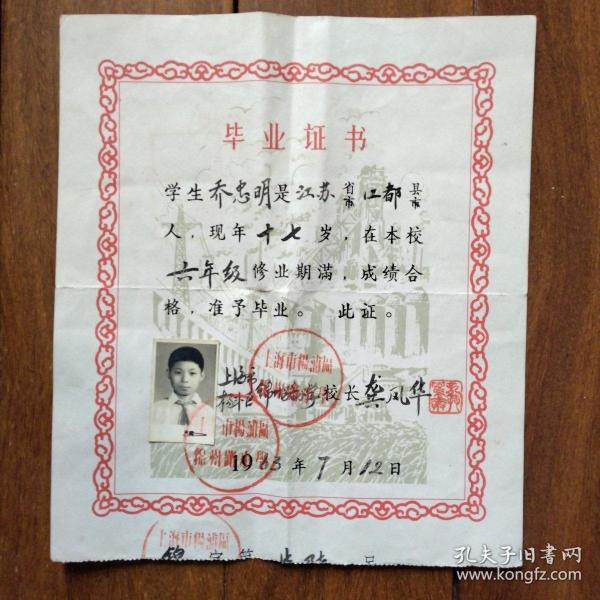 毕业证书
学生乔忠明是江苏省市江都县市
人，现年十七岁，在本校
六年级修业期满，成绩合
格，准予毕业。 此证。
上海市杨浦区
上海市
校长龚风华
上海市楊浦區
錦州路小學
1963年7月12日
上海市楊浦區
錦字第
号
孔夫子旧书网
www.kongfz.com